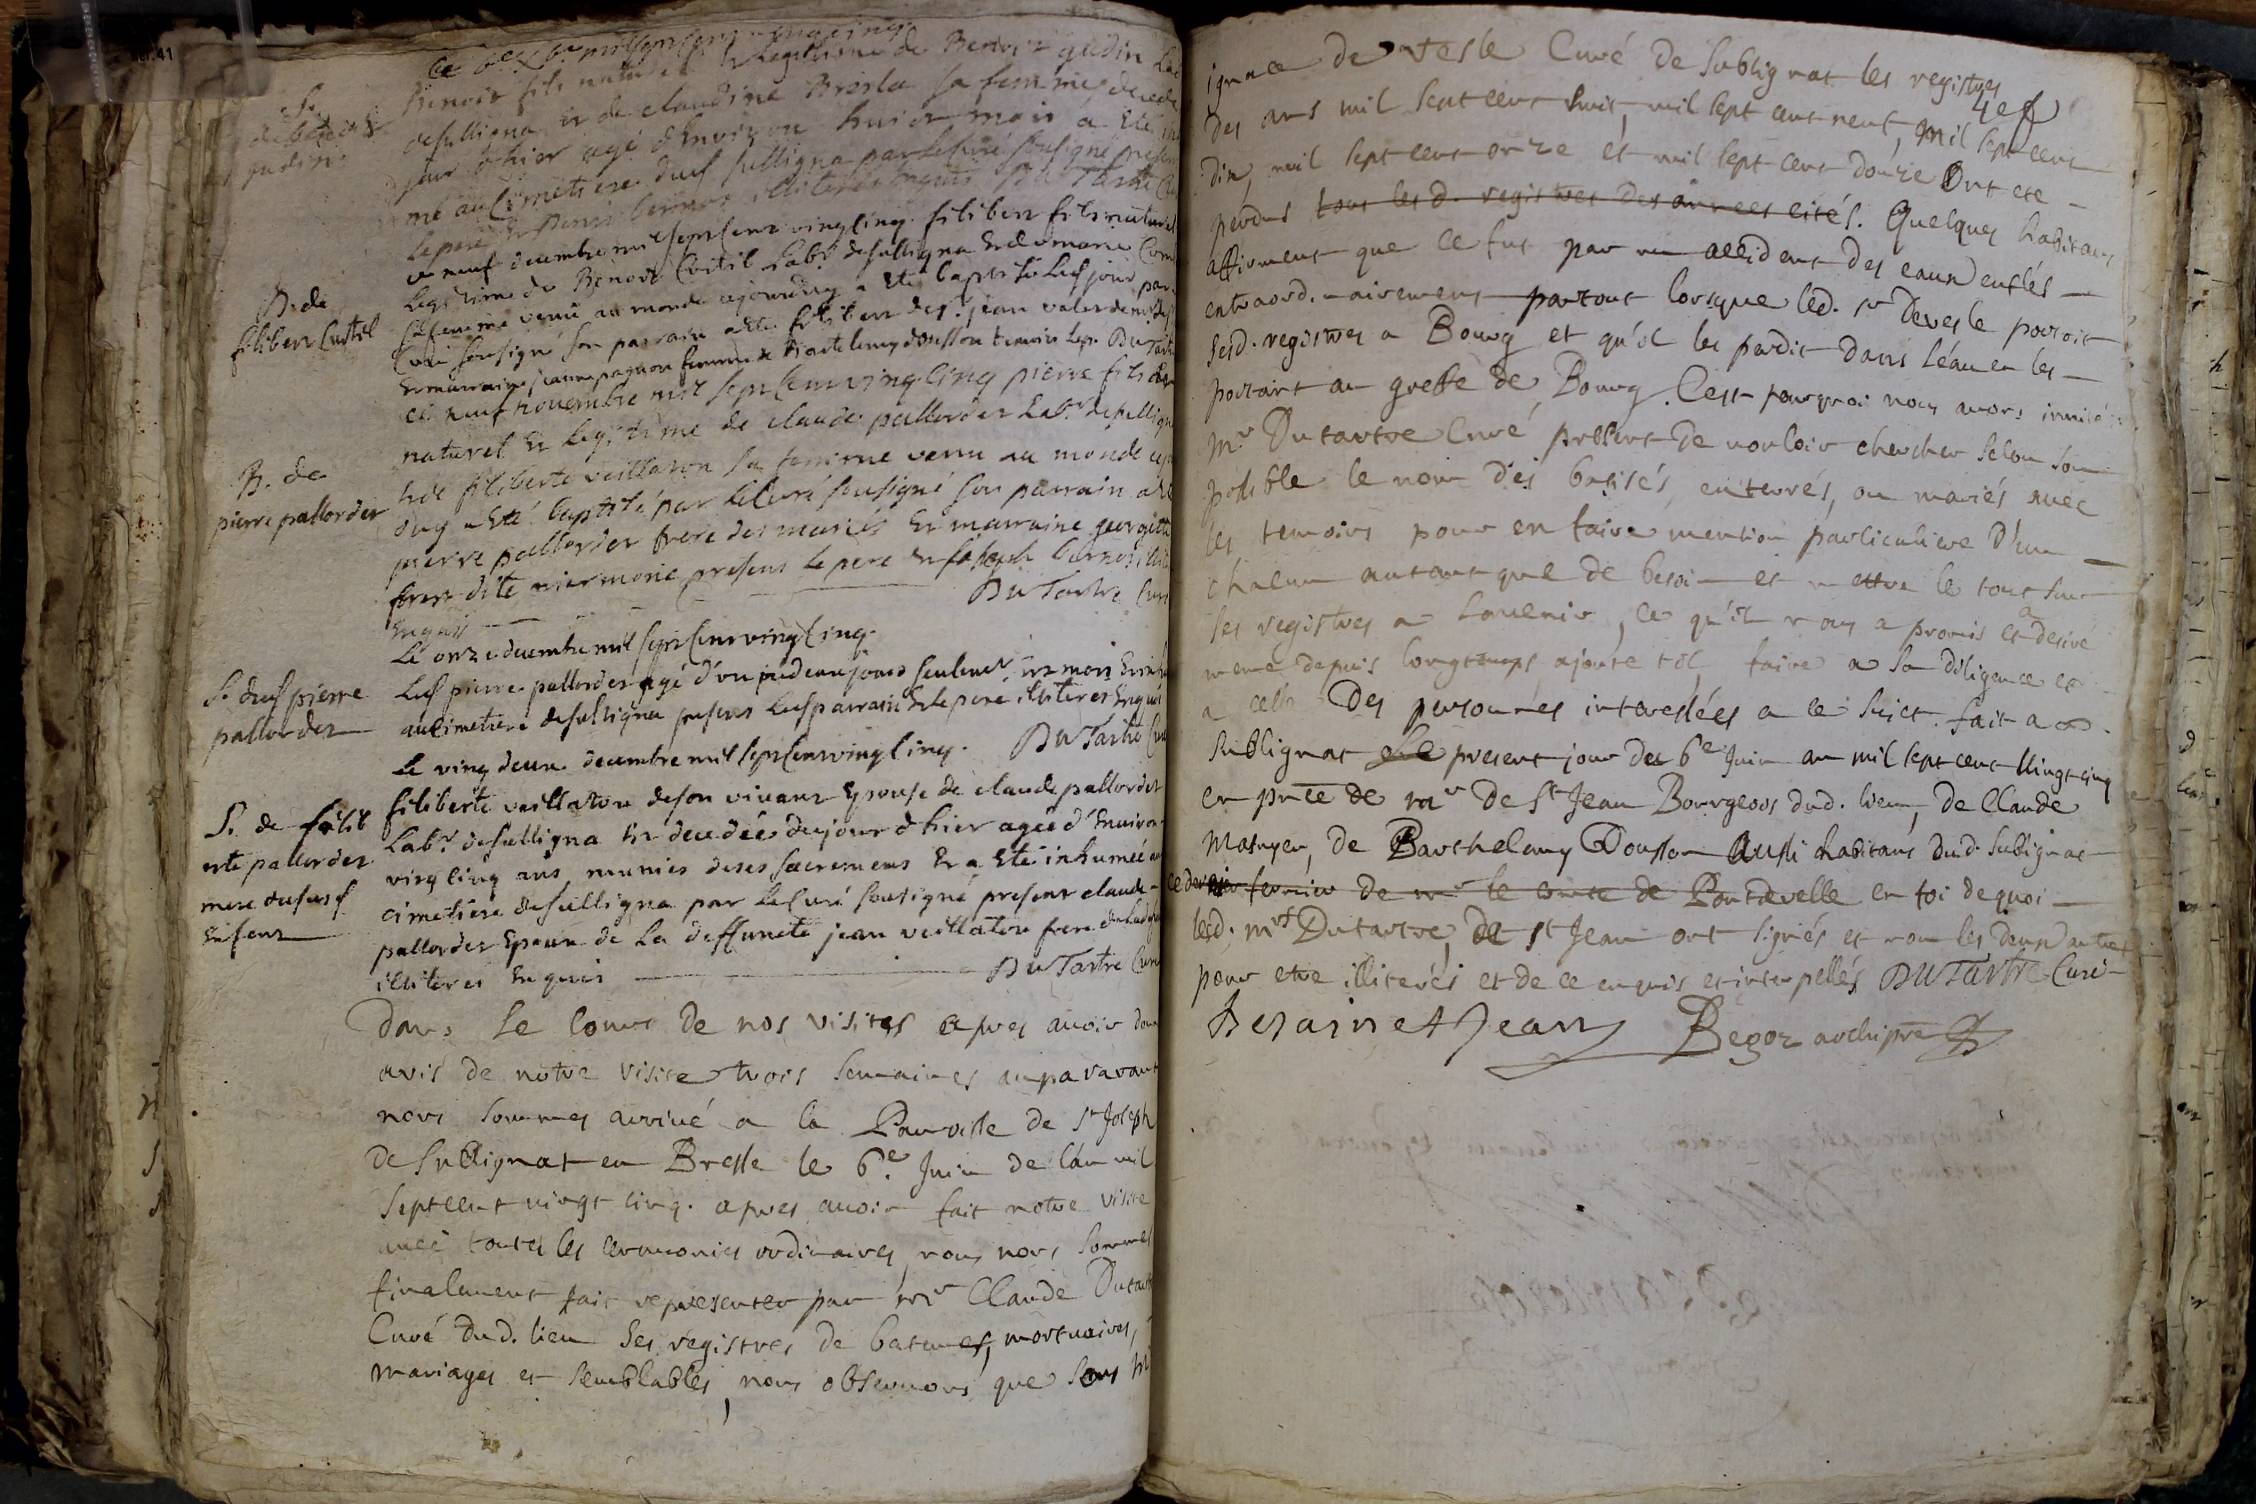 ce 8e Xbre mil sept cens vingcinq
S. de benoit gudin
Benoit fils naturel et Legitime de Benoit gudin Lab
de sulligna et de claudine Bresla sa femme, decede
jour d'hier agé d'Environ huict mois a Eté inhu
mé au Cimetiere dud sulligna par le Curé sousigné present
Le pere et Denis illiterés enquis Du Tartre Cu
B. de filiber Curtil
ce neuf decembre mil sept cens vingcinq. filiber fils naturel
Legitime de Benoit Curtil Labr de sulligna et de marie
sa femme venu au monde cejourduy a Eté baptisé led jour par
Curé sousigné son parrain a Eté filiber des. jean
et marraine jeanne pagnon femme de Bartelemy dousson temoins Lesp. Du Tartre
B. de pierre pallordet
ce neuf novembre mil sept cens vingcinq pierre fils
naturel et Legitime de claude pallordet Labr de sulligna
et de filiberte veillaton sa femme venu au monde cejour
duy a Eté baptisé par le Curé sousigné son parrain a Eté
pierre pallordet frere des mariés et marraine georgette
forest dite miermorie presens le pere et joseph Curnos illite
Enquis Du Tartre Curé
Le onze decembre mil sept cens vingcinq.
S. dud pierre pallordet
Led pierre pallordet agé d'un ou deux jours seulemt est mort Et inhu
au Cimetiere de sulligna presens Led parrain Et le pere illiterés Enquis
Du Tartre Cur
Le vingdeux decembre mil sept cens vingcinq.
S. de filiberte pallordet mere dususd Enfent
filiberte veillaton de son vivant Epouse de claude pallordet
Labr de sulligna Est decedée dujour d'hier agée d'Environ
vingcinq ans, munies de ses sacremens Et a Eté inhumée au
cimetiere de sulligna par Le Curé sousigné present claude
pallordet Epoux de La deffuncte jean veillaton frere de Lad
illiterés Enquis Du Tartre Curé
Dans Le Cours de nos visites apres avoir donné
avis de notre visite trois semaines auparavant
nous sommes arrivé a la Parroisse de St Joseph
de Sulignat en Bresse le 6.e Juin de l'an mil
septcent vingt cinq. apres avoir fait notre visite
avec toutes les ceremonies ordinaires, nous nous sommes
finalement fait representer par Mr Claude Dutartre
Curé dud. lieu Ses registres de batemes, mortuaires,
mariages et semblables, nous observons que sous Mr
ignace de Vesle Curé de Sublignat les registres
des ans mil septcent huit, mil sept cent neuf, mil sept cent
dix, mil sept cent onze et mil sept cent douze Ont ete
perdus tous les d. registres des années cités. Quelques habitans
affirment que ce fut par un accident des eaux enflés
extraord.nairement partout lorsque led. sr Devesle portoit
sesd. registres a Bourg et qu'il les perdit dans l'eau en les
portant au greffe de Bourg. C'est pourquoi nous avons invité
Mr Dutartre Curé present de vouloir chercher selon son
possible le nom des batisés, enterrés, ou mariés avec
les temoins pour en faire mention particuliere d'un
chacun autant que de besoin et mettre le tout sur
ses registres a l'avenir, ce qu'il nous a promis et a desiré
meme depuis longtemps ajoute t'il faire a sa diligence et
a celle Des personnes interessées a ce sujet. fait a
Sublignat le present jour du 6e Juin an mil sept cent Vingt cinq
en pnce de mr de St Jean Bourgeois dud. lieu, de Claude
Matuyer, de Barthelemy Dousson Aussi habitans dud. Sulignat
ce dernier fermier de mr le comte de Pontdevelle en foi de quoi
lesd. mrs Dutartre, de St Jean ont signés et non les deux autres
pour etre illiterés et de ce enquis et interpellés Du Tartre Curé
Desainct Jean Begoz archiprê